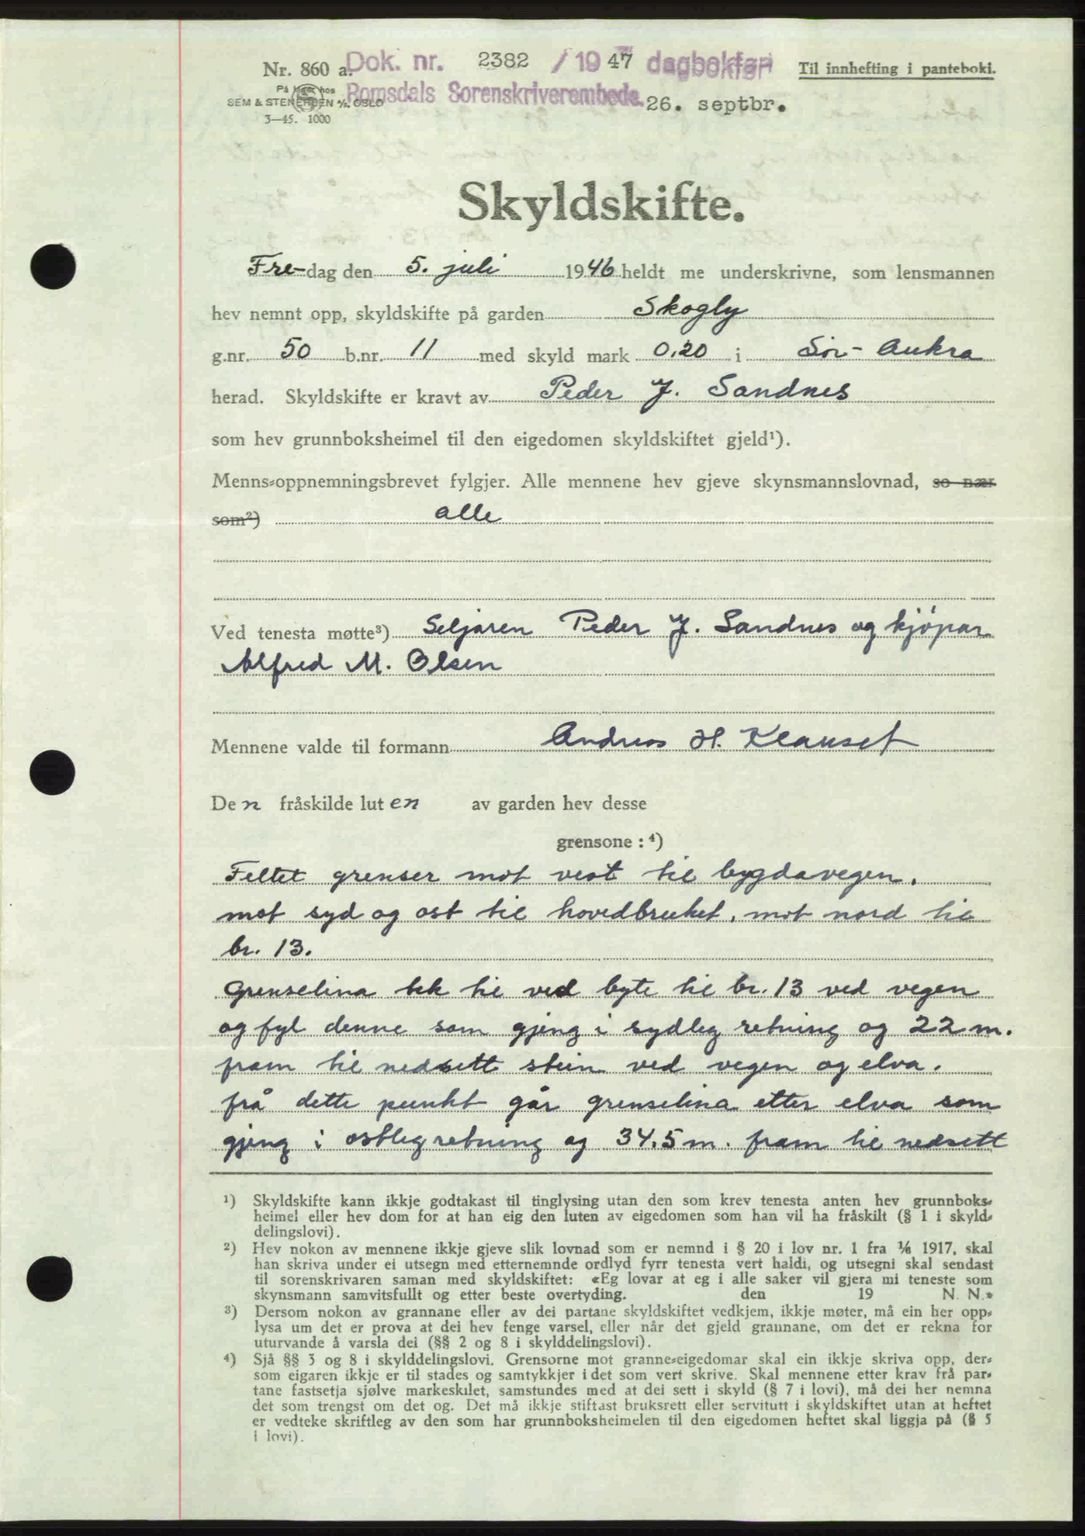 Nr. 860 a. Dok. nr. 2382 / 1947 dagbokført Til innhefting i panteboki.
På lager hos
SEM & STENERSEN A/S, OSLO Romsdals Sorenskriverembede. 26. septbr.
3—45. 1000
Skyldskifte.
Fre-dag den 5. juli 1946 heldt me underskrivne, som lensmannen
hev nemnt opp, skyldskifte på garden Skogly
g.nr. 50 b.nr. 11 med skyld mark 0,20 i Sør-Aukra
herad. Skyldskifte er kravt av Peder J. Sandnes
som hev grunnboksheimel til den eigedomen skyldskiftet gjeld¹).
Menns-oppnemningsbrevet fylgjer. Alle mennene hev gjeve skynsmannslovnad, so nær
som²) alle
Ved tenesta møtte³) Seljaren Peder J. Sandnes og kjöpar
Alfred M. Olsen
Mennene valde til formann Andreas H. Klauset
Den fråskilde luten av garden hev desse
grensone : ⁴)
Feltet grenser mot vest til bygdavegen,
mot syd og ost til hovedbruket, mot nord til
br. 13.
Grenselina tek til ved byte til br. 13 ved vegen
og fyl denne som gjeng i sydleg retning og 22 m.
fram til nedsett stein ved vegen og elva.
frå dette punkt går grenselina etter elva som
gjeng i ostleg retning og 34,5 m. fram til nedsett
¹) Skyldskifte kann ikkje godtakast til tinglysing utan den som krev tenesta anten hev grunnboks-
heimel eller hev dom for at han eig den luten av eigedomen som han vil ha fråskilt (§ 1 i skyld-
delingslovi).
²) Hev nokon av mennene ikkje gjeve slik lovnad som er nemnd i § 20 i lov nr. 1 fra 1/6 1917, skal
han skriva under ei utsegn med etternemnde ordlyd fyrr tenesta vert haldi, og utsegni skal sendast
til sorenskrivaren saman med skyldskiftet: «Eg lovar at eg i alle saker vil gjera mi teneste som
skynsmann samvitsfullt og etter beste overtyding. den 19 N. N.»
³) Dersom nokon av grannane eller av dei partane skyldskiftet vedkjem, ikkje møter, må ein her opp-
lysa um det er prova at dei hev fenge varsel, eller når det gjeld grannane, om det er rekna for
uturvande å varsla dei (§§ 2 og 8 i skylddelingslovi).
⁴) Sjå §§ 3 og 8 i skylddelingslovi. Grensorne mot granne-eigedomar skal ein ikkje skriva opp, der-
som eigaren ikkje er til stades og samtykkjer i det som vert skrive. Skal mennene etter krav frå par-
tane fastsetja sjølve markeskilet, samstundes med at dei sett i skyld (§ 7 i lovi), må dei her nemna
det som trengst om det og. Det må ikkje stiftast bruksrett eller servitutt i skyldskiftet utan at heftet
er vedteke skriftleg av den som har grunnboksheimelen til den eigedomen heftet skal liggja på (§ 5
i lovi).